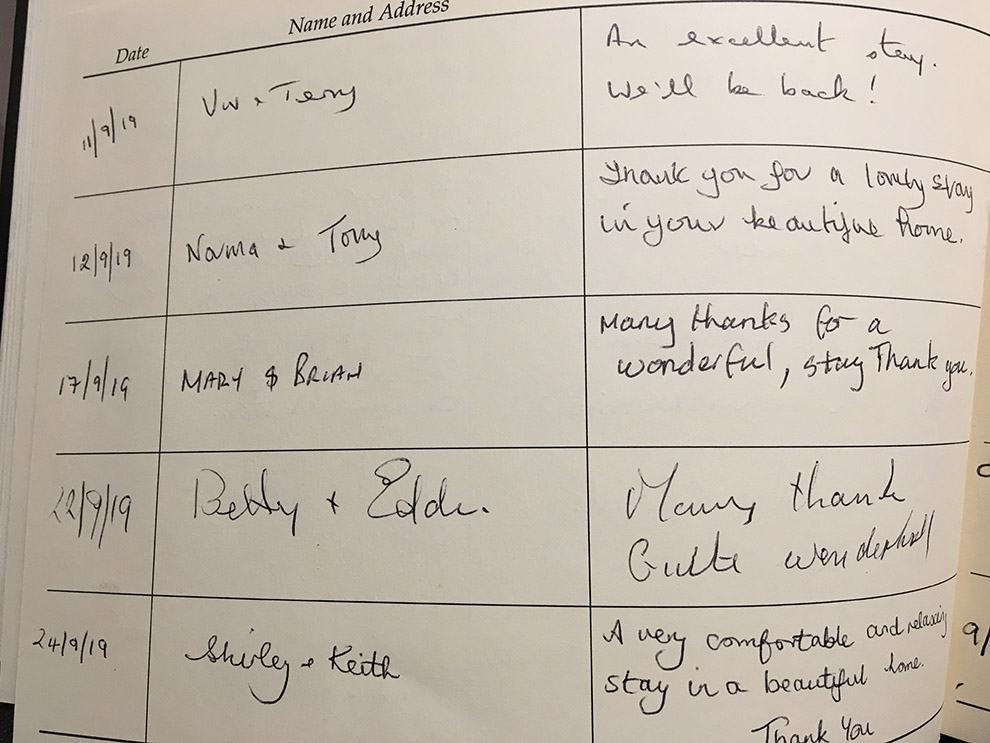 Date Name and Address
11/9/19 Viv + Terry An excellent stay.
We'll be back!
12/9/19 Norma + Tony Thank you for a lovely stay
in your beautiful home.
17/9/19 MARY & BRIAN Many thanks for a
wonderful, stay Thank you.
22/9/19 Betty + Eddie. Many thank
Quite wonderful
24/9/19 Shirley + Keith A very comfortable and relaxing
stay in a beautiful home.
Thank You
9/